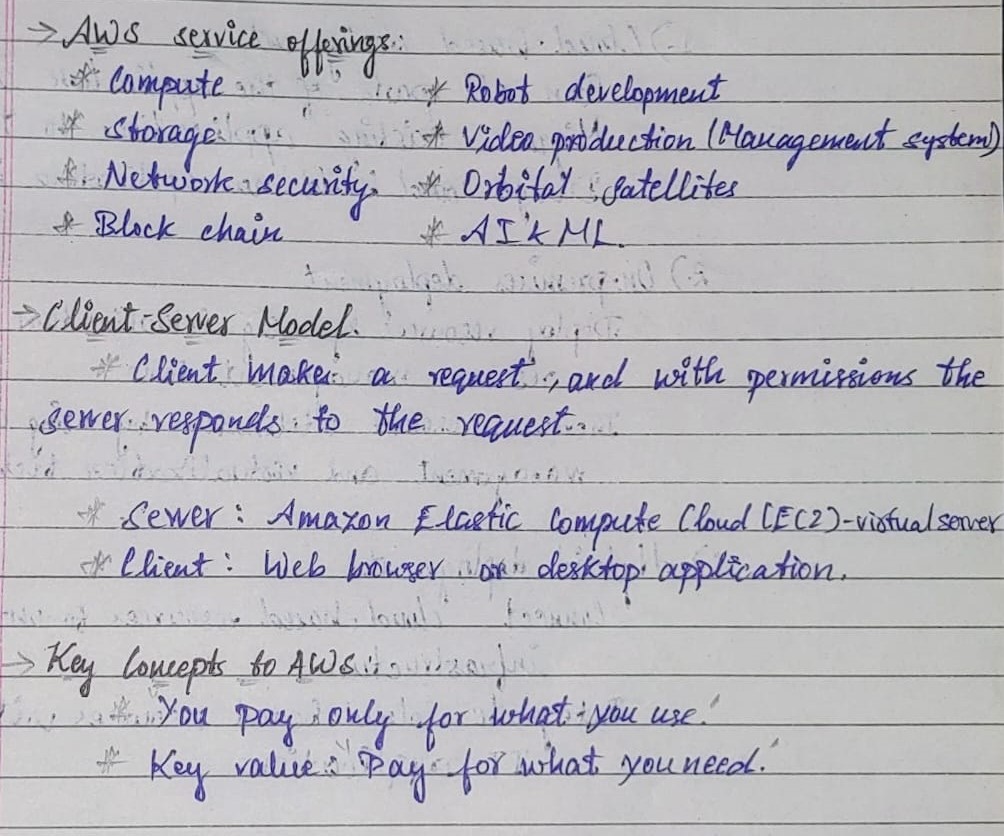 → AWS service offerings:
* Compute * Robot development
* Storage * Video production (Management system)
* Network security * Orbital satellites
* Block chain * AI & ML.
→ Client-Server Model.
* Client makes a request, and with permissions the
server responds to the request.
* Server: Amazon Elastic Compute Cloud (EC2)-virtual server
* Client: Web browser or desktop application.
→ Key Concepts to AWS:
* You pay only for what you use.
* Key value: Pay for what you need.